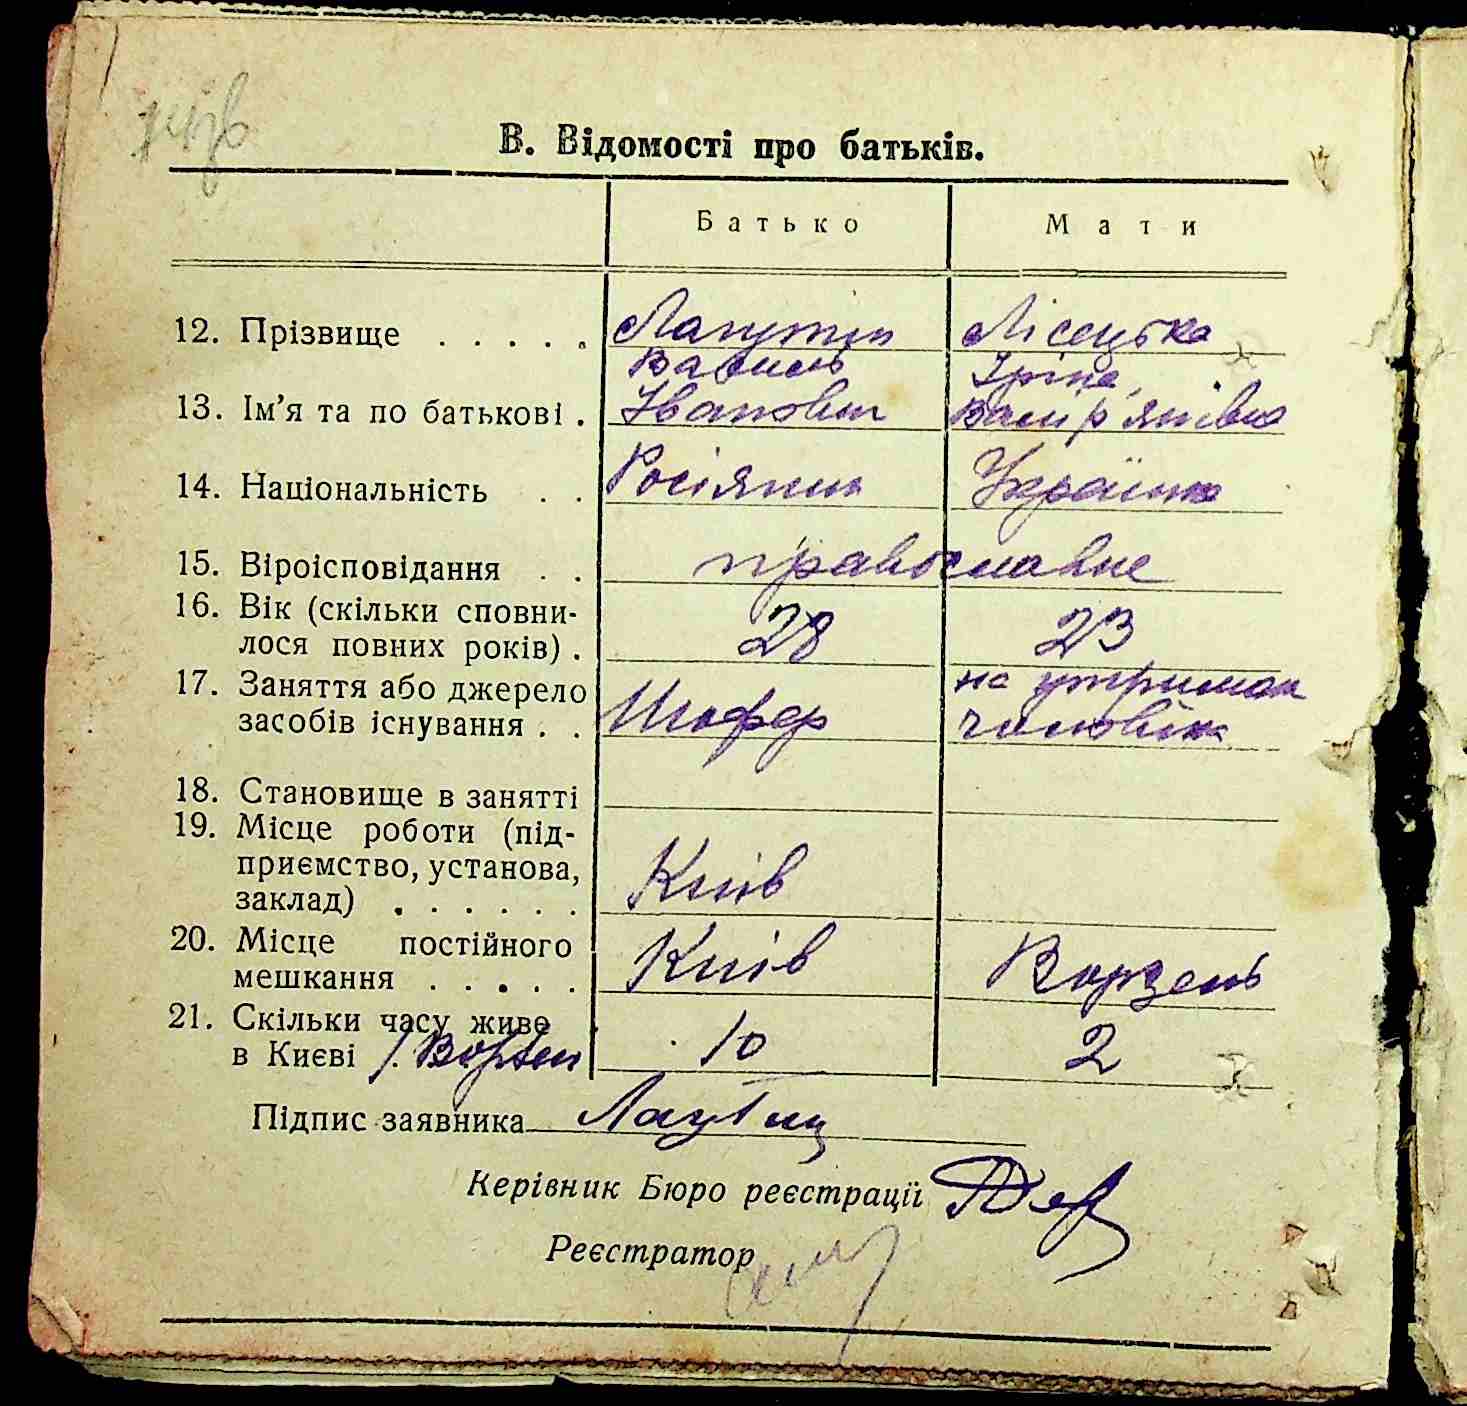 В. Відомості про батьків.
Батько Мати
12. Прізвище . . . . . Лагутин Лісецька
Василь Іріна,
13. Ім’я та по батькові . Іванович
14. Національність . . Росіянин Українка
15. Віроісповідання . . православне
16. Вік (скільки сповни-
лося повних років) . 28 23
17. Заняття або джерело на утриман
засобів існування . . Шофер чоловіка
18. Становище в занятті
19. Місце роботи (під-
приємство, установа,
заклад) . . . . . . Київ
20. Місце постійного
мешкання . . . . . Київ Ворзель
21. Скільки часу живе
в Києві /. Ворзелі 10 2
Підпис заявника Лагутин
Керівник Бюро реєстрації
Реєстратор